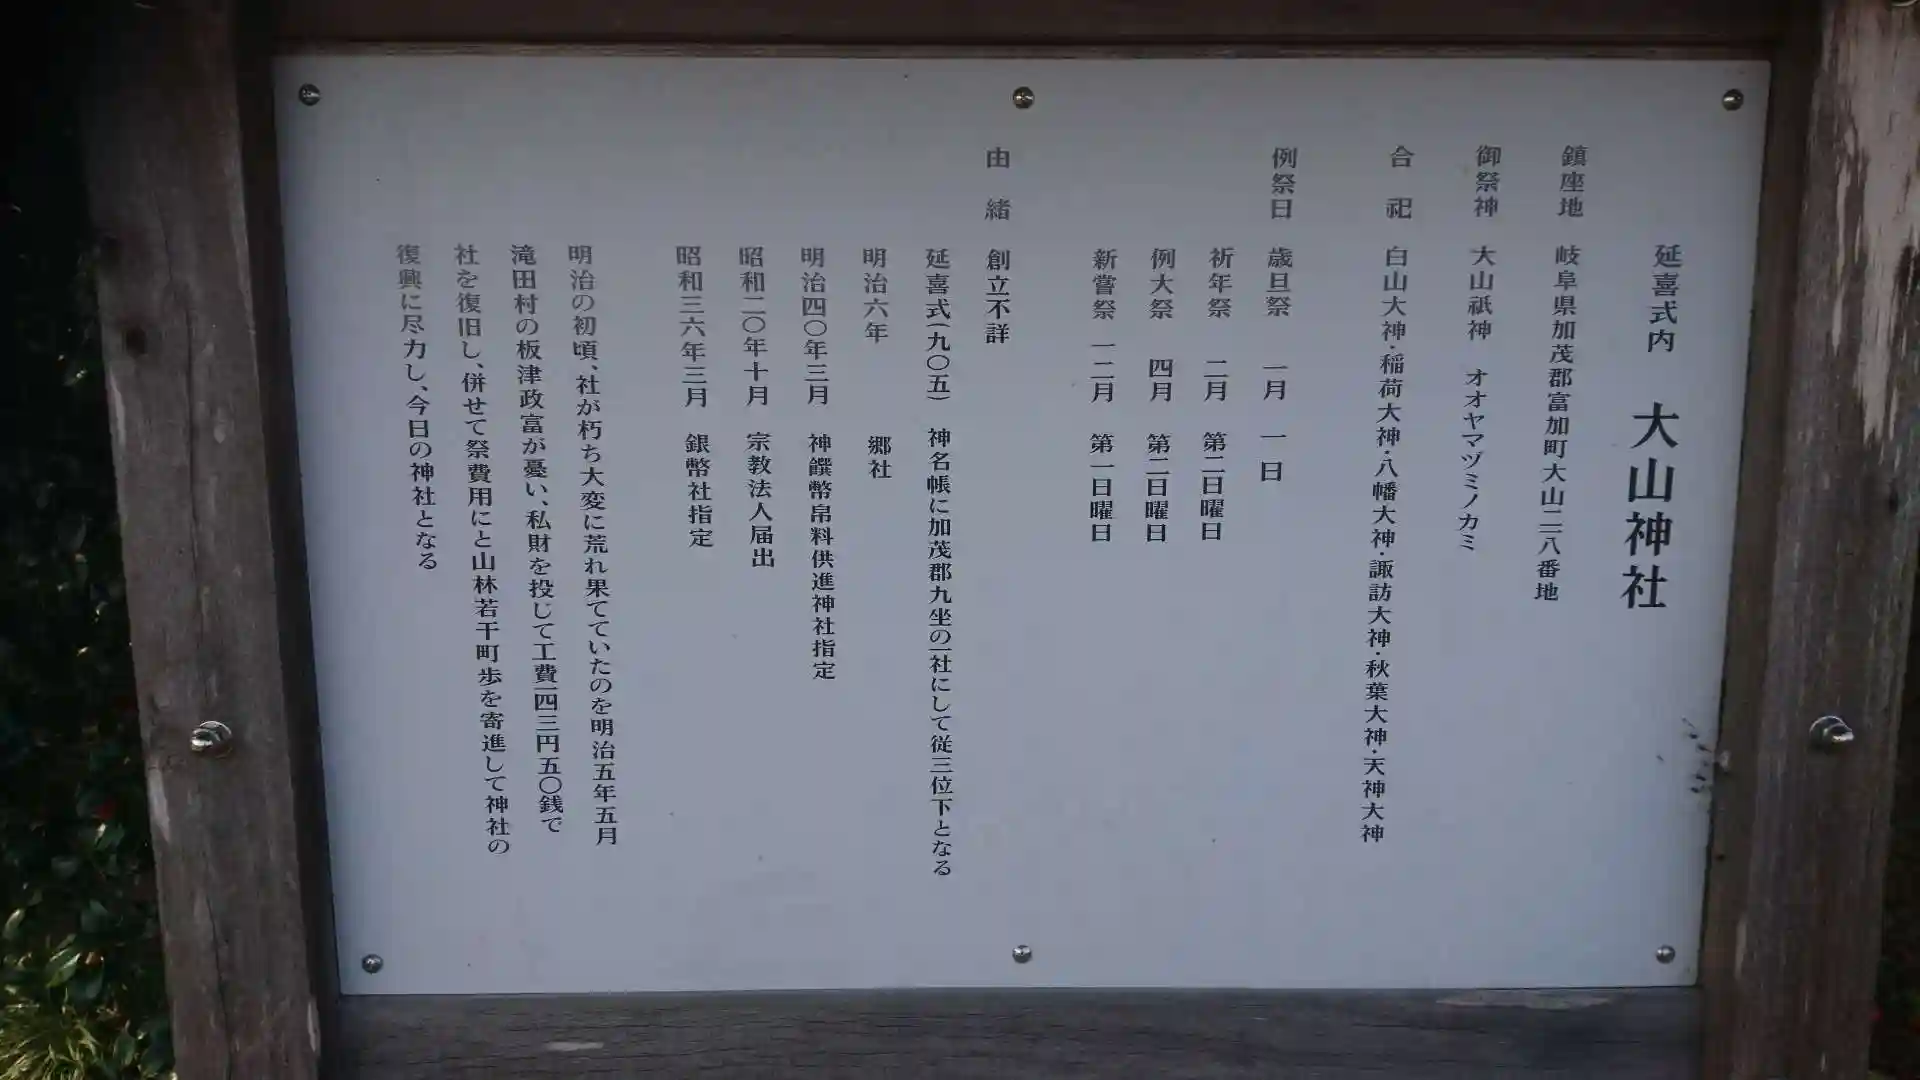 延喜式内　大山神社
鎮座地　岐阜県加茂郡富加町大山二八番地
御祭神　大山祇神　オオヤマヅミノカミ
合　祀　白山大神・稲荷大神・八幡大神・諏訪大神・秋葉大神・天神大神
例祭日　歳旦祭　一月　一日
祈年祭　二月　第二日曜日
例大祭　四月　第二日曜日
新嘗祭　一二月　第一日曜日
由　緒　創立不詳
延喜式(九〇五)　神名帳に加茂郡九坐の一社にして従三位下となる
明治六年　郷社
明治四〇年三月　神饌幣帛料供進神社指定
昭和二〇年十月　宗教法人届出
昭和三六年三月　銀幣社指定
明治の初頃、社が朽ち大変に荒れ果てていたのを明治五年五月
滝田村の板津政富が憂い、私財を投じて工費一四三円五〇銭で
社を復旧し、併せて祭費用にと山林若干町歩を寄進して神社の
復興に尽力し、今日の神社となる